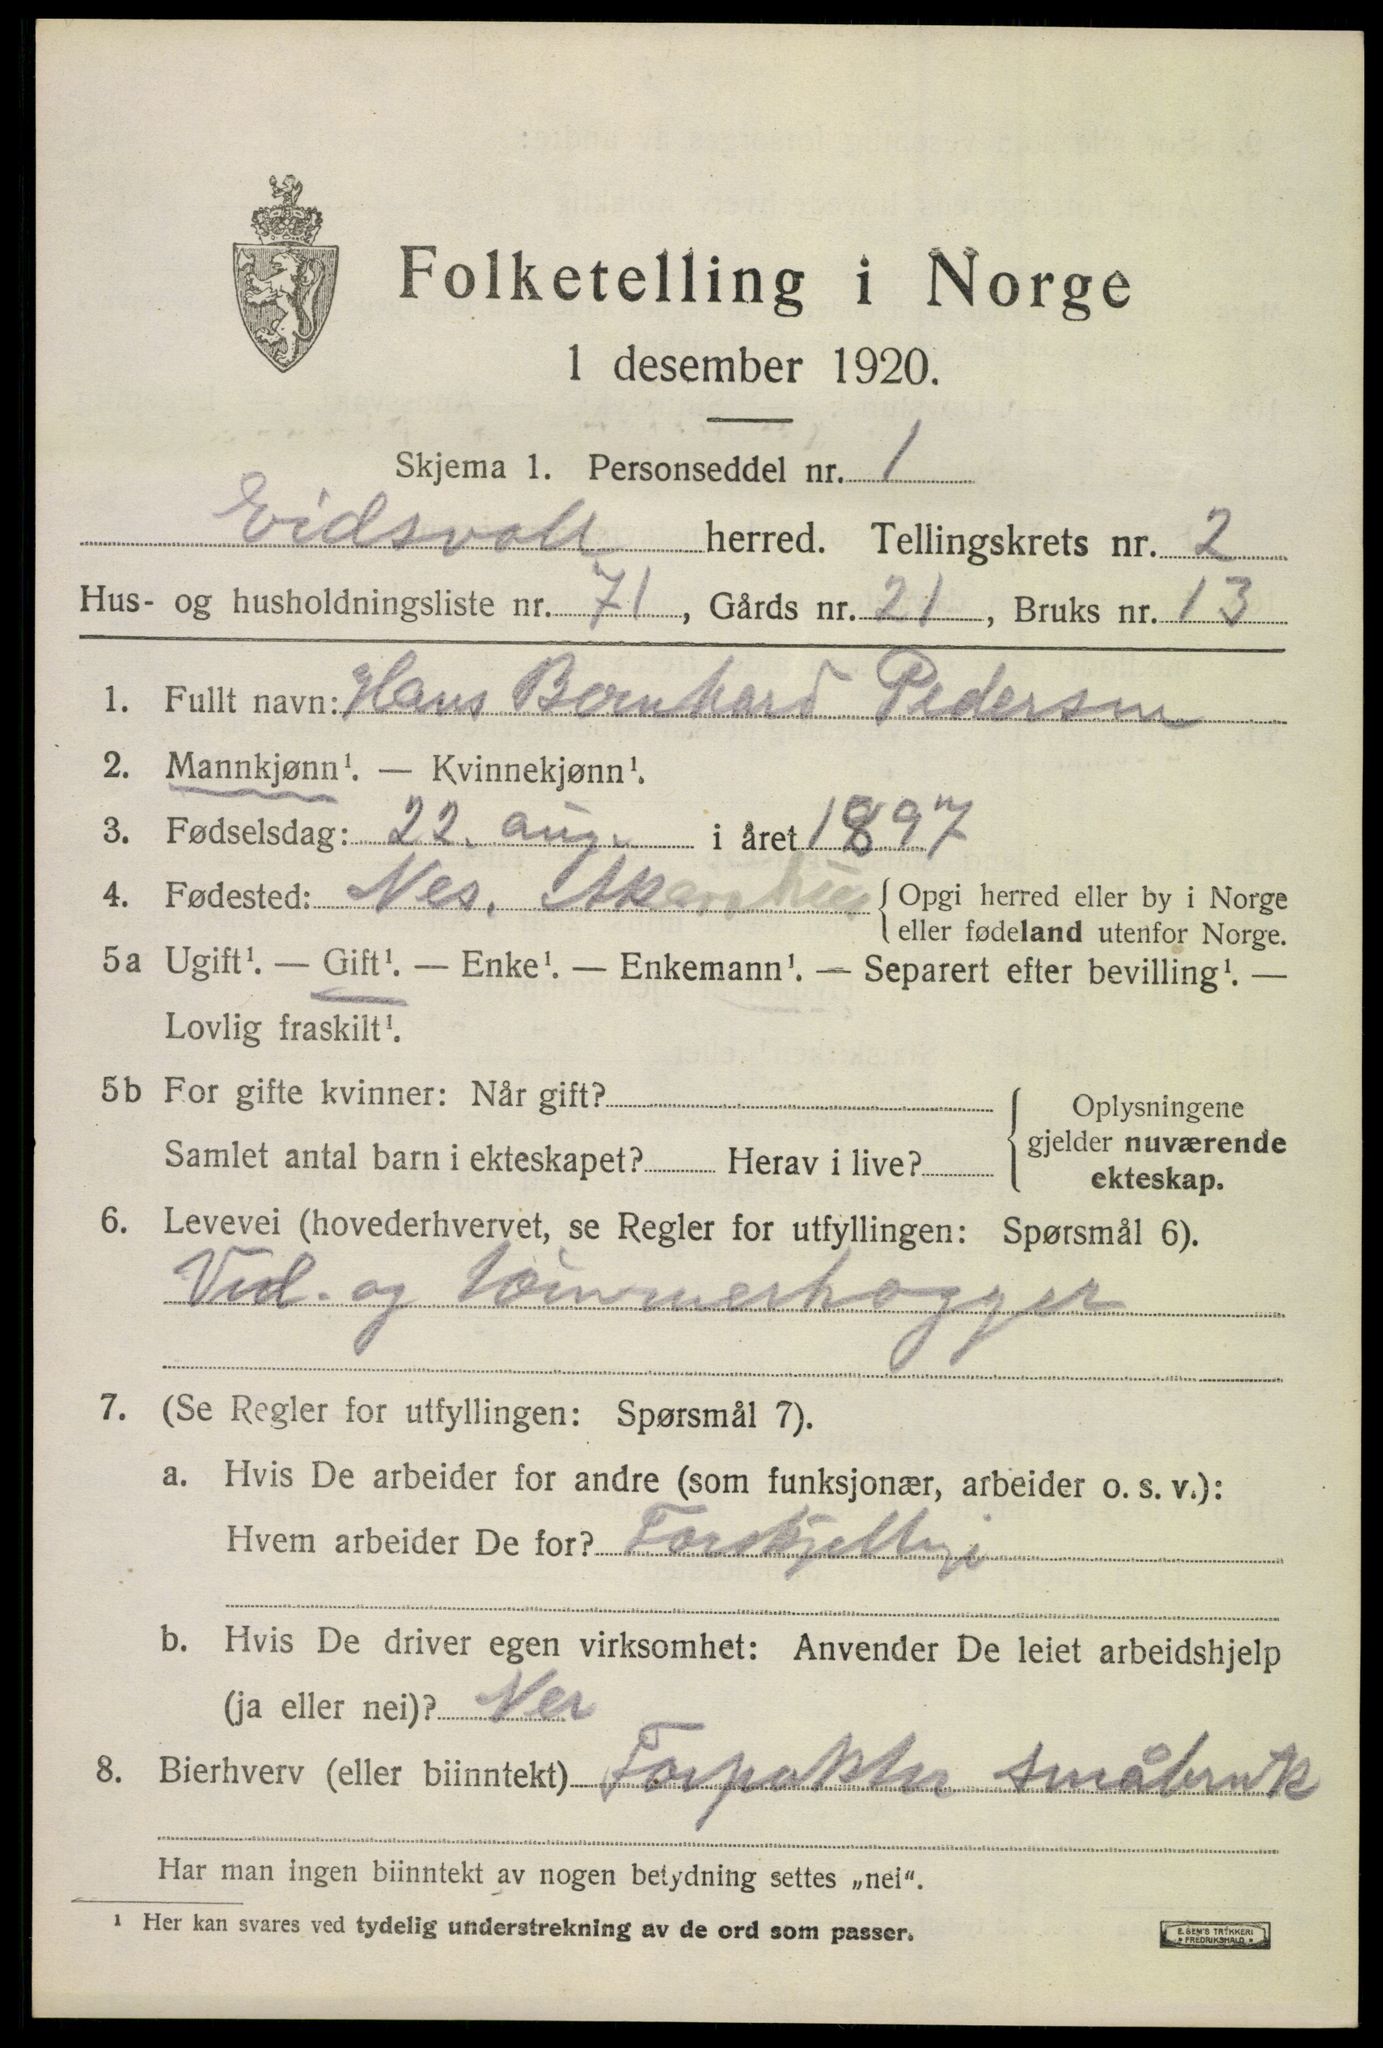 Folketelling i Norge
1 desember 1920.
Skjema 1. Personseddel nr. 1
Eidsvoll herred. Tellingskrets nr. 2
Hus- og husholdningsliste nr. 71, Gårds nr. 21, Bruks nr. 13
1. Fullt navn: Hans Bernhard Pedersen
2. Mannkjønn¹. — Kvinnekjønn¹.
3. Fødselsdag: 22. aug. i året 1897
4. Fødested: Nes. Akershus { Opgi herred eller by i Norge
eller fødeland utenfor Norge.
5a Ugift¹. — Gift¹. — Enke¹. — Enkemann¹. — Separert efter bevilling¹. —
Lovlig fraskilt¹.
5b For gifte kvinner: Når gift?
Samlet antal barn i ekteskapet? Herav i live?
Oplysningene
gjelder nuværende
ekteskap.
6. Levevei (hovederhvervet, se Regler for utfyllingen: Spørsmål 6).
Ved- og tømmerhogger
7. (Se Regler for utfyllingen: Spørsmål 7).
a. Hvis De arbeider for andre (som funksjonær, arbeider o. s. v.):
Hvem arbeider De for? Forskjellige
b. Hvis De driver egen virksomhet: Anvender De leiet arbeidshjelp
(ja eller nei)? Nei
8. Bierhverv (eller biinntekt) Forpakter småbruk
Har man ingen biinntekt av nogen betydning settes „nei".
¹ Her kan svares ved tydelig understrekning av de ord som passer.
E. SEM'S TRYKKERI
FREDRIKSHALD